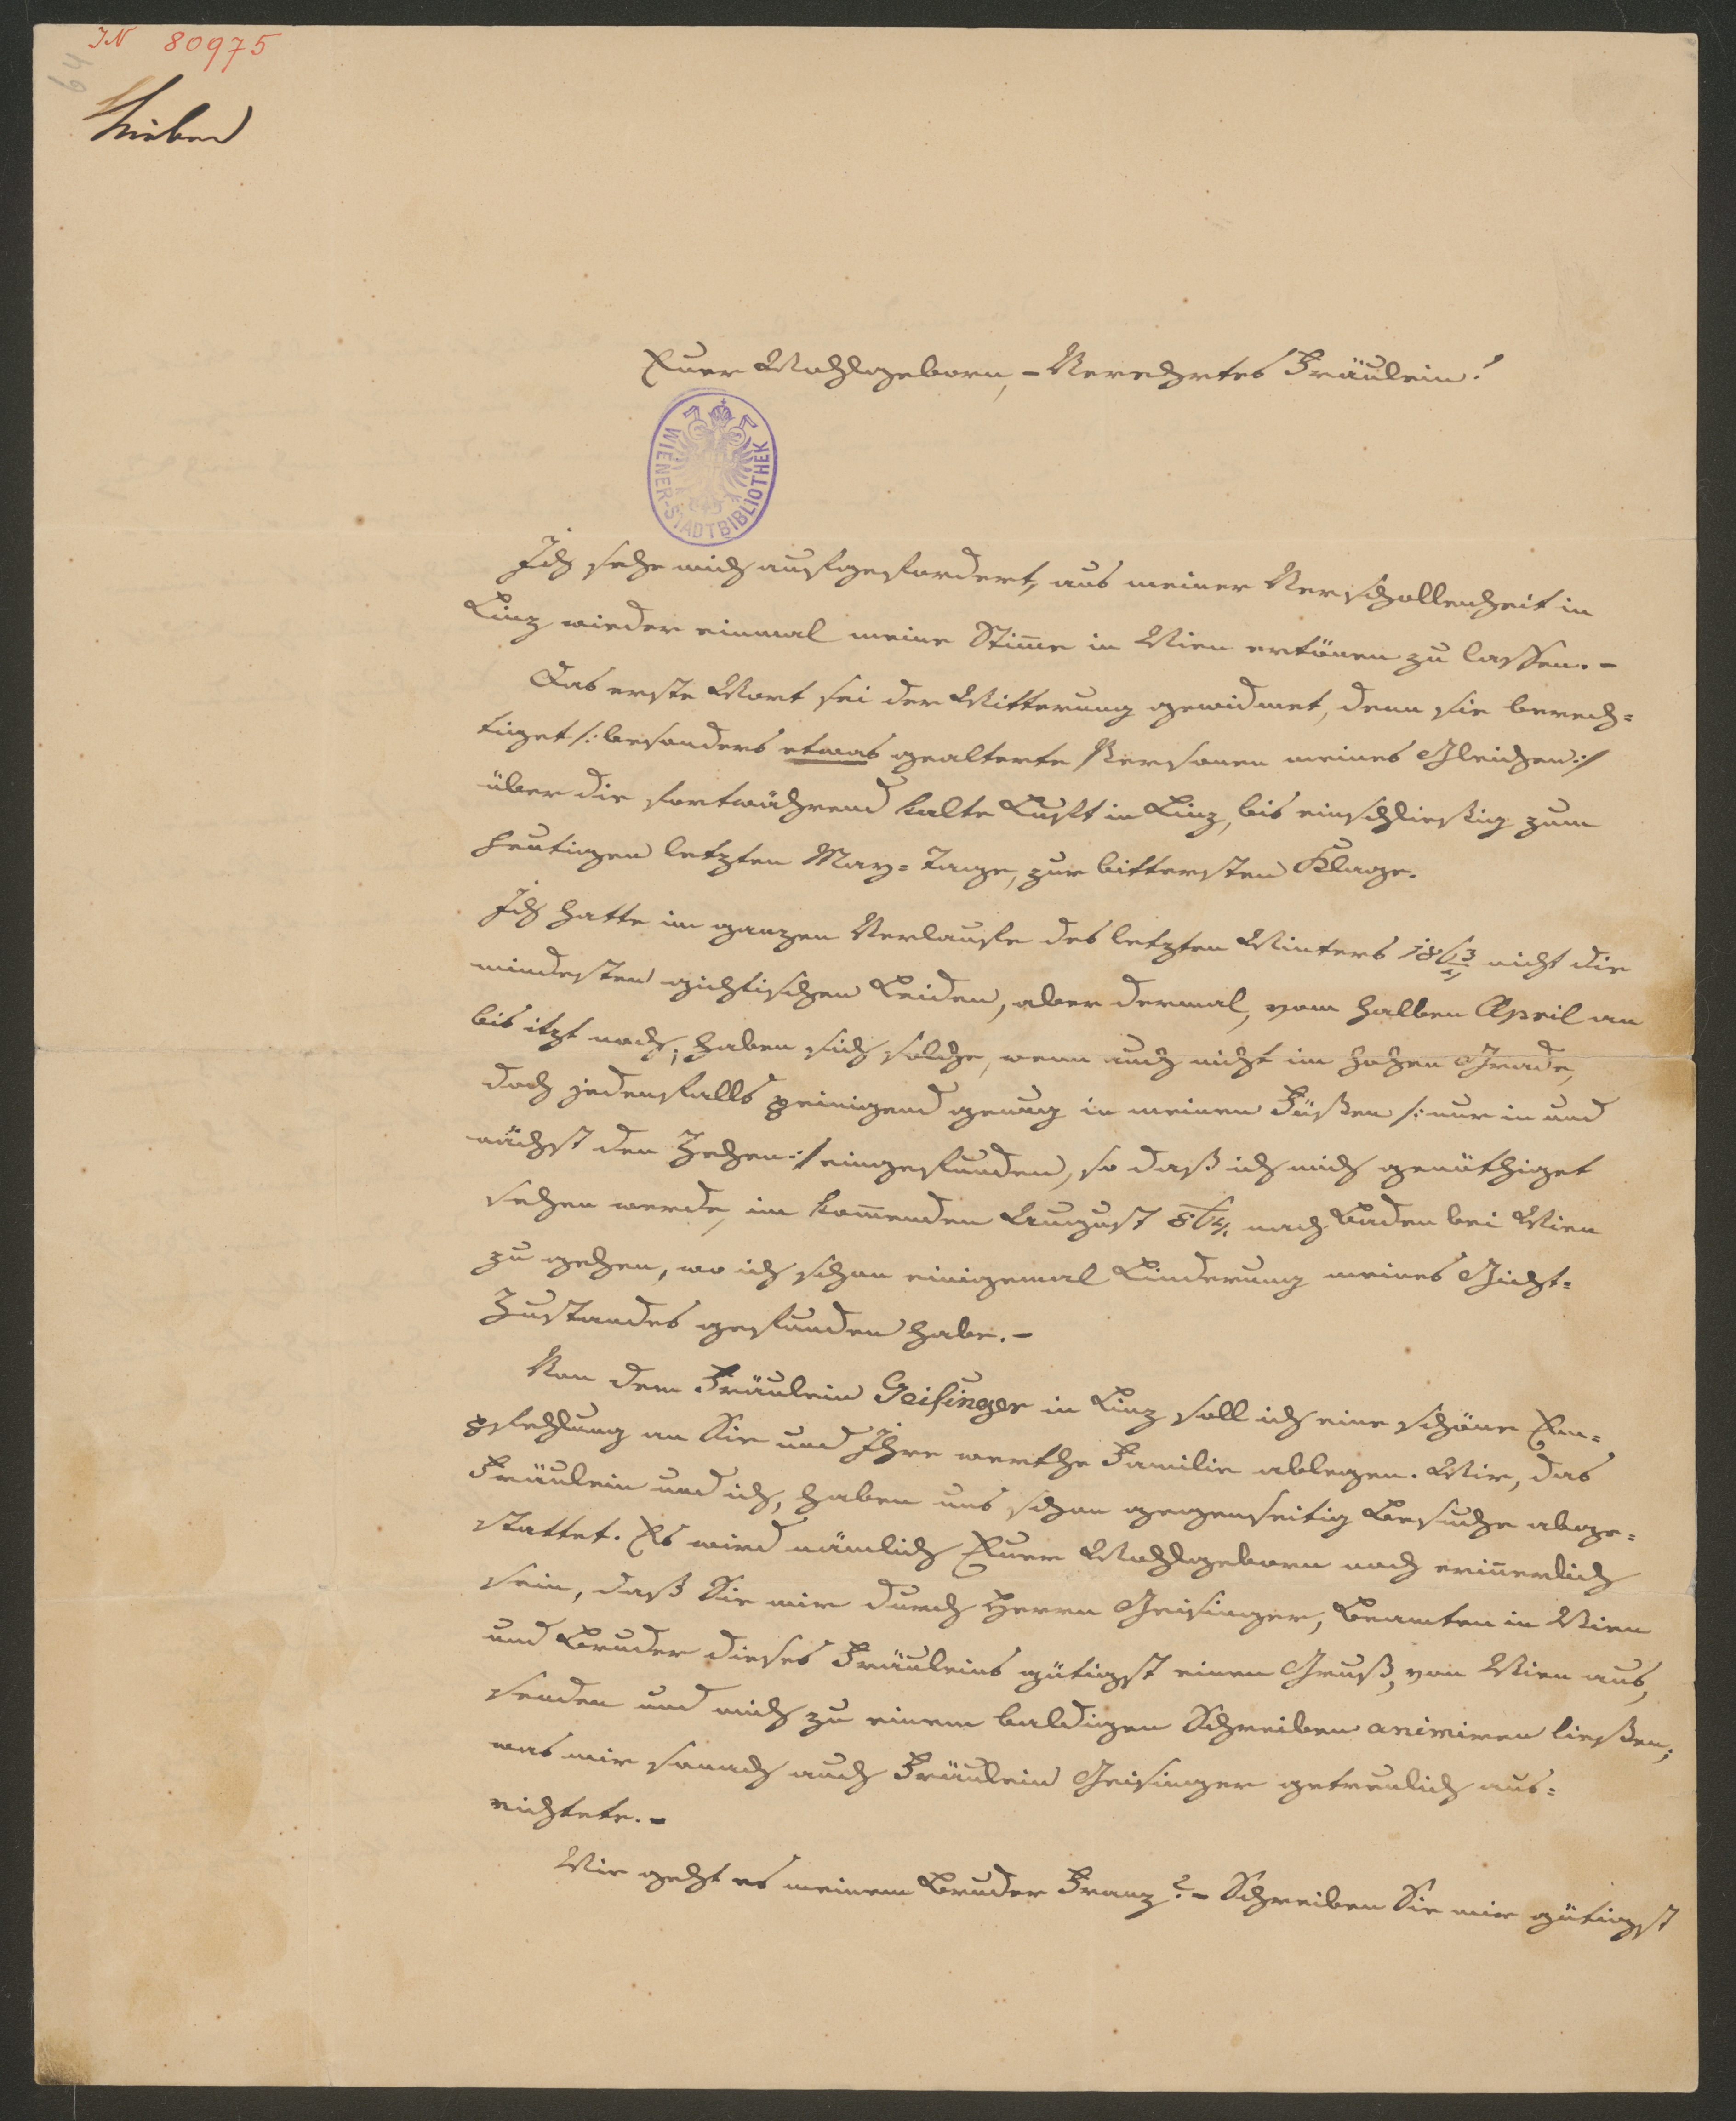 IN 80975
64
Euer Wohlgeborn, – Verehrtes Fräulein!
WIENER-STADTBIBLIOTHEK
Ich sehe mich aufgefordert, aus meiner Verschollenheit in
Linz wieder einmal meine Stim̅e in Wien ertönen zu lassen. –
Das erste Wort sei der Witterung gewidmet, denn sie berech=
tiget /: besonders etwas gealterte Personen meines Gleichen :/
über die fortwährend kalte Luft in Linz, bis einschließig zum
heutigen letzten May=Tage, zur bittersten Klage.
Ich hatte im ganzen Verlaufe des letzten Winters 1863/4 nicht die
mindesten gichtischen Leiden, aber dermal, vom halben April an
bis itzt noch, haben sich solche, wenn auch nicht im hohen Grade,
doch jedenfalls peinigend genug in meinen Füßen /: nur in und
nächst den Zehen :/ eingefunden, so daß ich mich genöthiget
sehen werde, im kom̅enden August 864. nach Baden bei Wien
zu gehen, wo ich schon einigemal Linderung meines Gicht=
Zustandes gefunden habe. –
Von dem Fräulein Geisinger in Linz soll ich eine schöne Em=
pfehlung an Sie und Ihre werthe Familie ablegen. Wir, das
Fräulein und ich, haben uns schon gegenseitig Besuche abge=
stattet. Es wird nämlich Euer Wohlgeborn noch erin̅erlich
sein, daß Sie mir durch Herrn Geisinger, Beamten in Wien
und Bruder dieses Fräuleins gütigst einen Gruß, von Wien aus,
senden und mich zu einem baldigen Schreiben animiren ließen;
was mir sonach auch Fräulein Geisinger getreulich aus=
richtete. –
Wie geht es meinem Bruder Franz? – Schreiben Sie mir gütigst